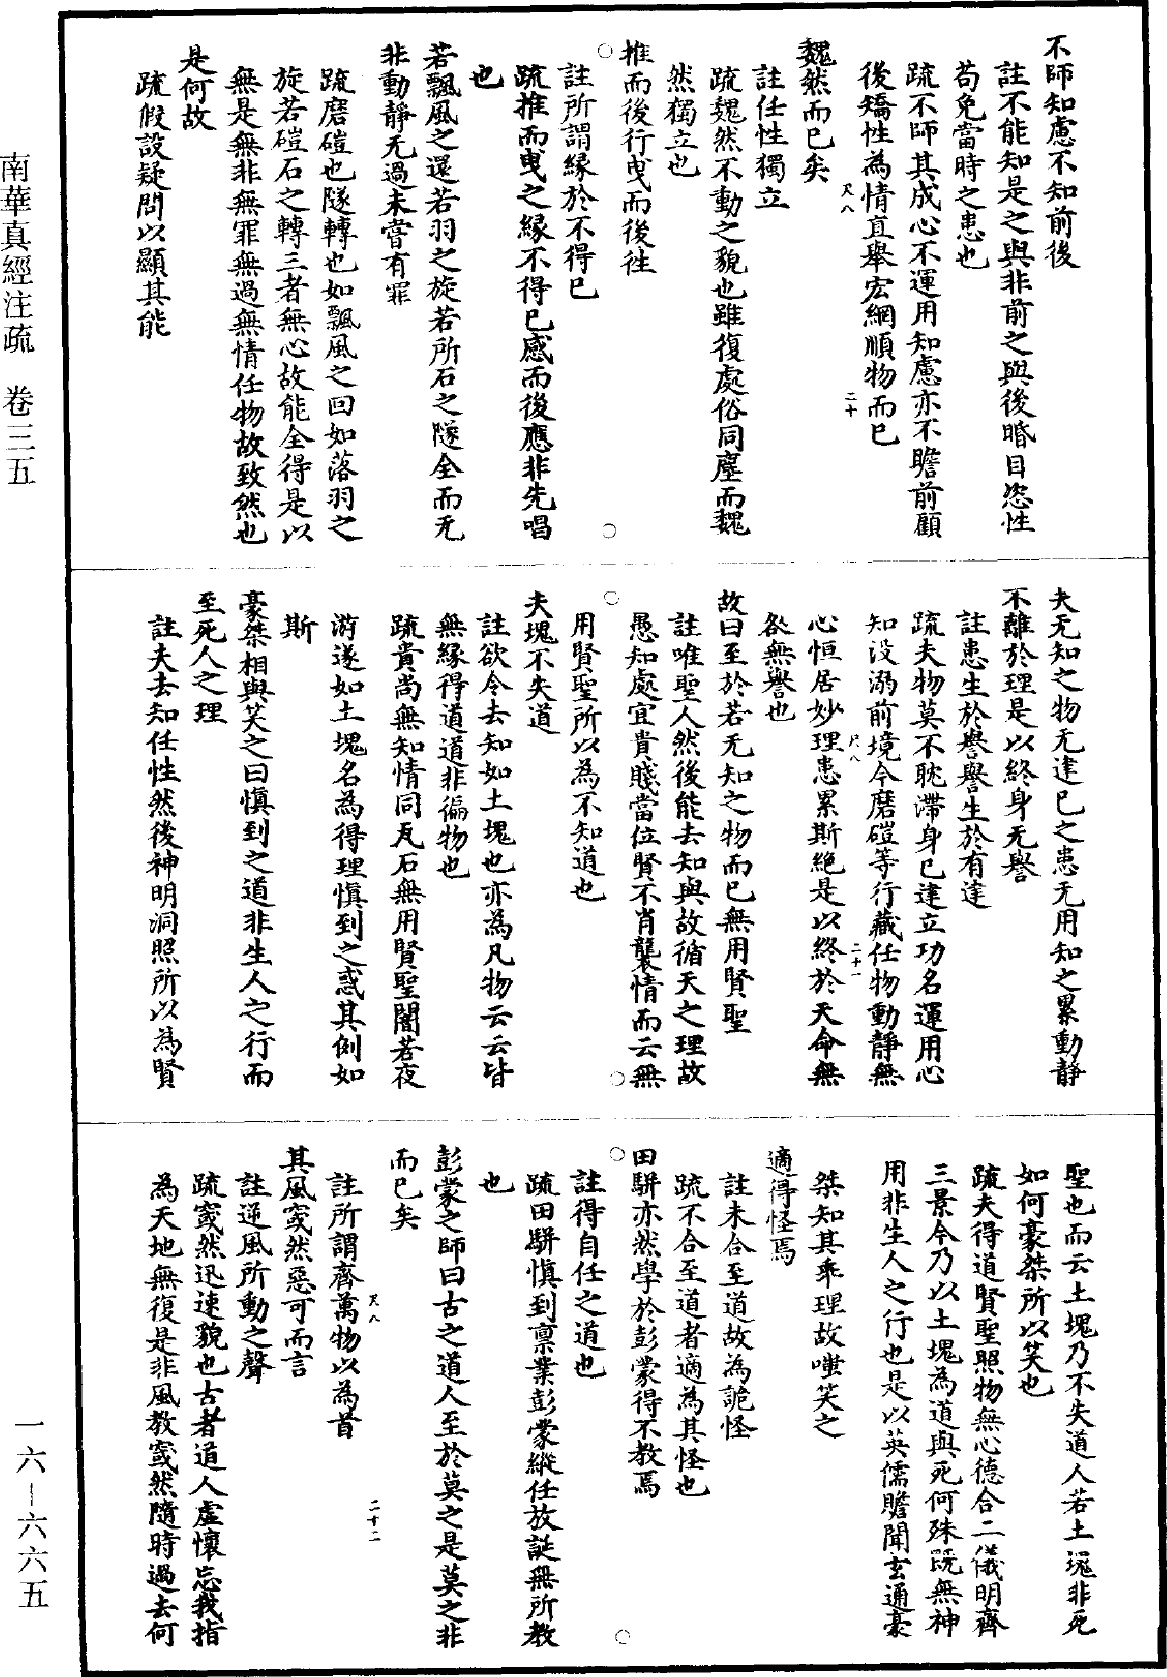 不師知慮不知前後
註不能知是之與非前之與後睧目恣性
苟免當時之患也
疏不師其成心不運用知慮亦不瞻前顧
後矯性為情直舉宏綱順物而已
尺八
二十
魏然而已矣
註任性獨立
疏魏然不動之貌也雖復處俗同塵而魏
然獨立也
推而後行曳而後往
註所謂緣於不得已
疏推而曳之緣不得已感而後應非先唱
也
若飄風之還若羽之旋若所石之隧全而无
非動靜无過未嘗有罪
疏磨磑也隧轉也如飄風之回如落羽之
旋若磑石之轉三者無心故能全得是以
無是無非無罪無過無情任物故致然也
是何故
疏假設疑問以顯其能
夫无知之物无建已之患无用知之累動靜
不離於理是以終身无譽
註患生於譽譽生於有建
疏夫物莫不眈滯身已建立功名運用心
知沒溺前境今磨磑等行藏任物動靜無
心恒居妙理患累斯絕是以終於天命無
咎無譽也
尺八
二十一
故曰至於若无知之物而已無用賢聖
註唯聖人然後能去知與故循天之理故
愚知處宜貴賤當位賢不肖襲情而云無
用賢聖所以為不知道也
夫塊不失道
註欲令去知如土塊也亦為凡物云云皆
無緣得道道非徧物也
疏貴尚無知情同瓦石無用賢聖闇若夜
游遂如土塊名為得理慎到之惑其例如
斯
豪桀相與笑之曰慎到之道非生人之行而
至死人之理
註夫去知任性然後神明洞照所以為賢
聖也而云土塊乃不失道人若土塊非死
如何豪桀所以笑也
疏夫得道賢聖照物無心德合二儀明齊
三景今乃以土塊為道與死何殊既無神
用非生人之行也是以英儒贍聞玄通豪
桀知其乖理故嗤笑之
適得怪焉
註未合至道故為詭怪
疏不合至道者適為其怪也
田駢亦然學於彭蒙得不教焉
註得自任之道也
疏田駢慎到稟業彭蒙縱任放誕無所教
也
彭蒙之師曰古之道人至於莫之是莫之非
而已矣
註所謂齊萬物以為首
尺八
二十二
其風窢然惡可而言
註逆風所動之聲
疏窢然迅速貌也古者道人虛懷忘我指
為天地無復是非風教窢然隨時過去何
南華真經注疏 卷三五
一六—六六五